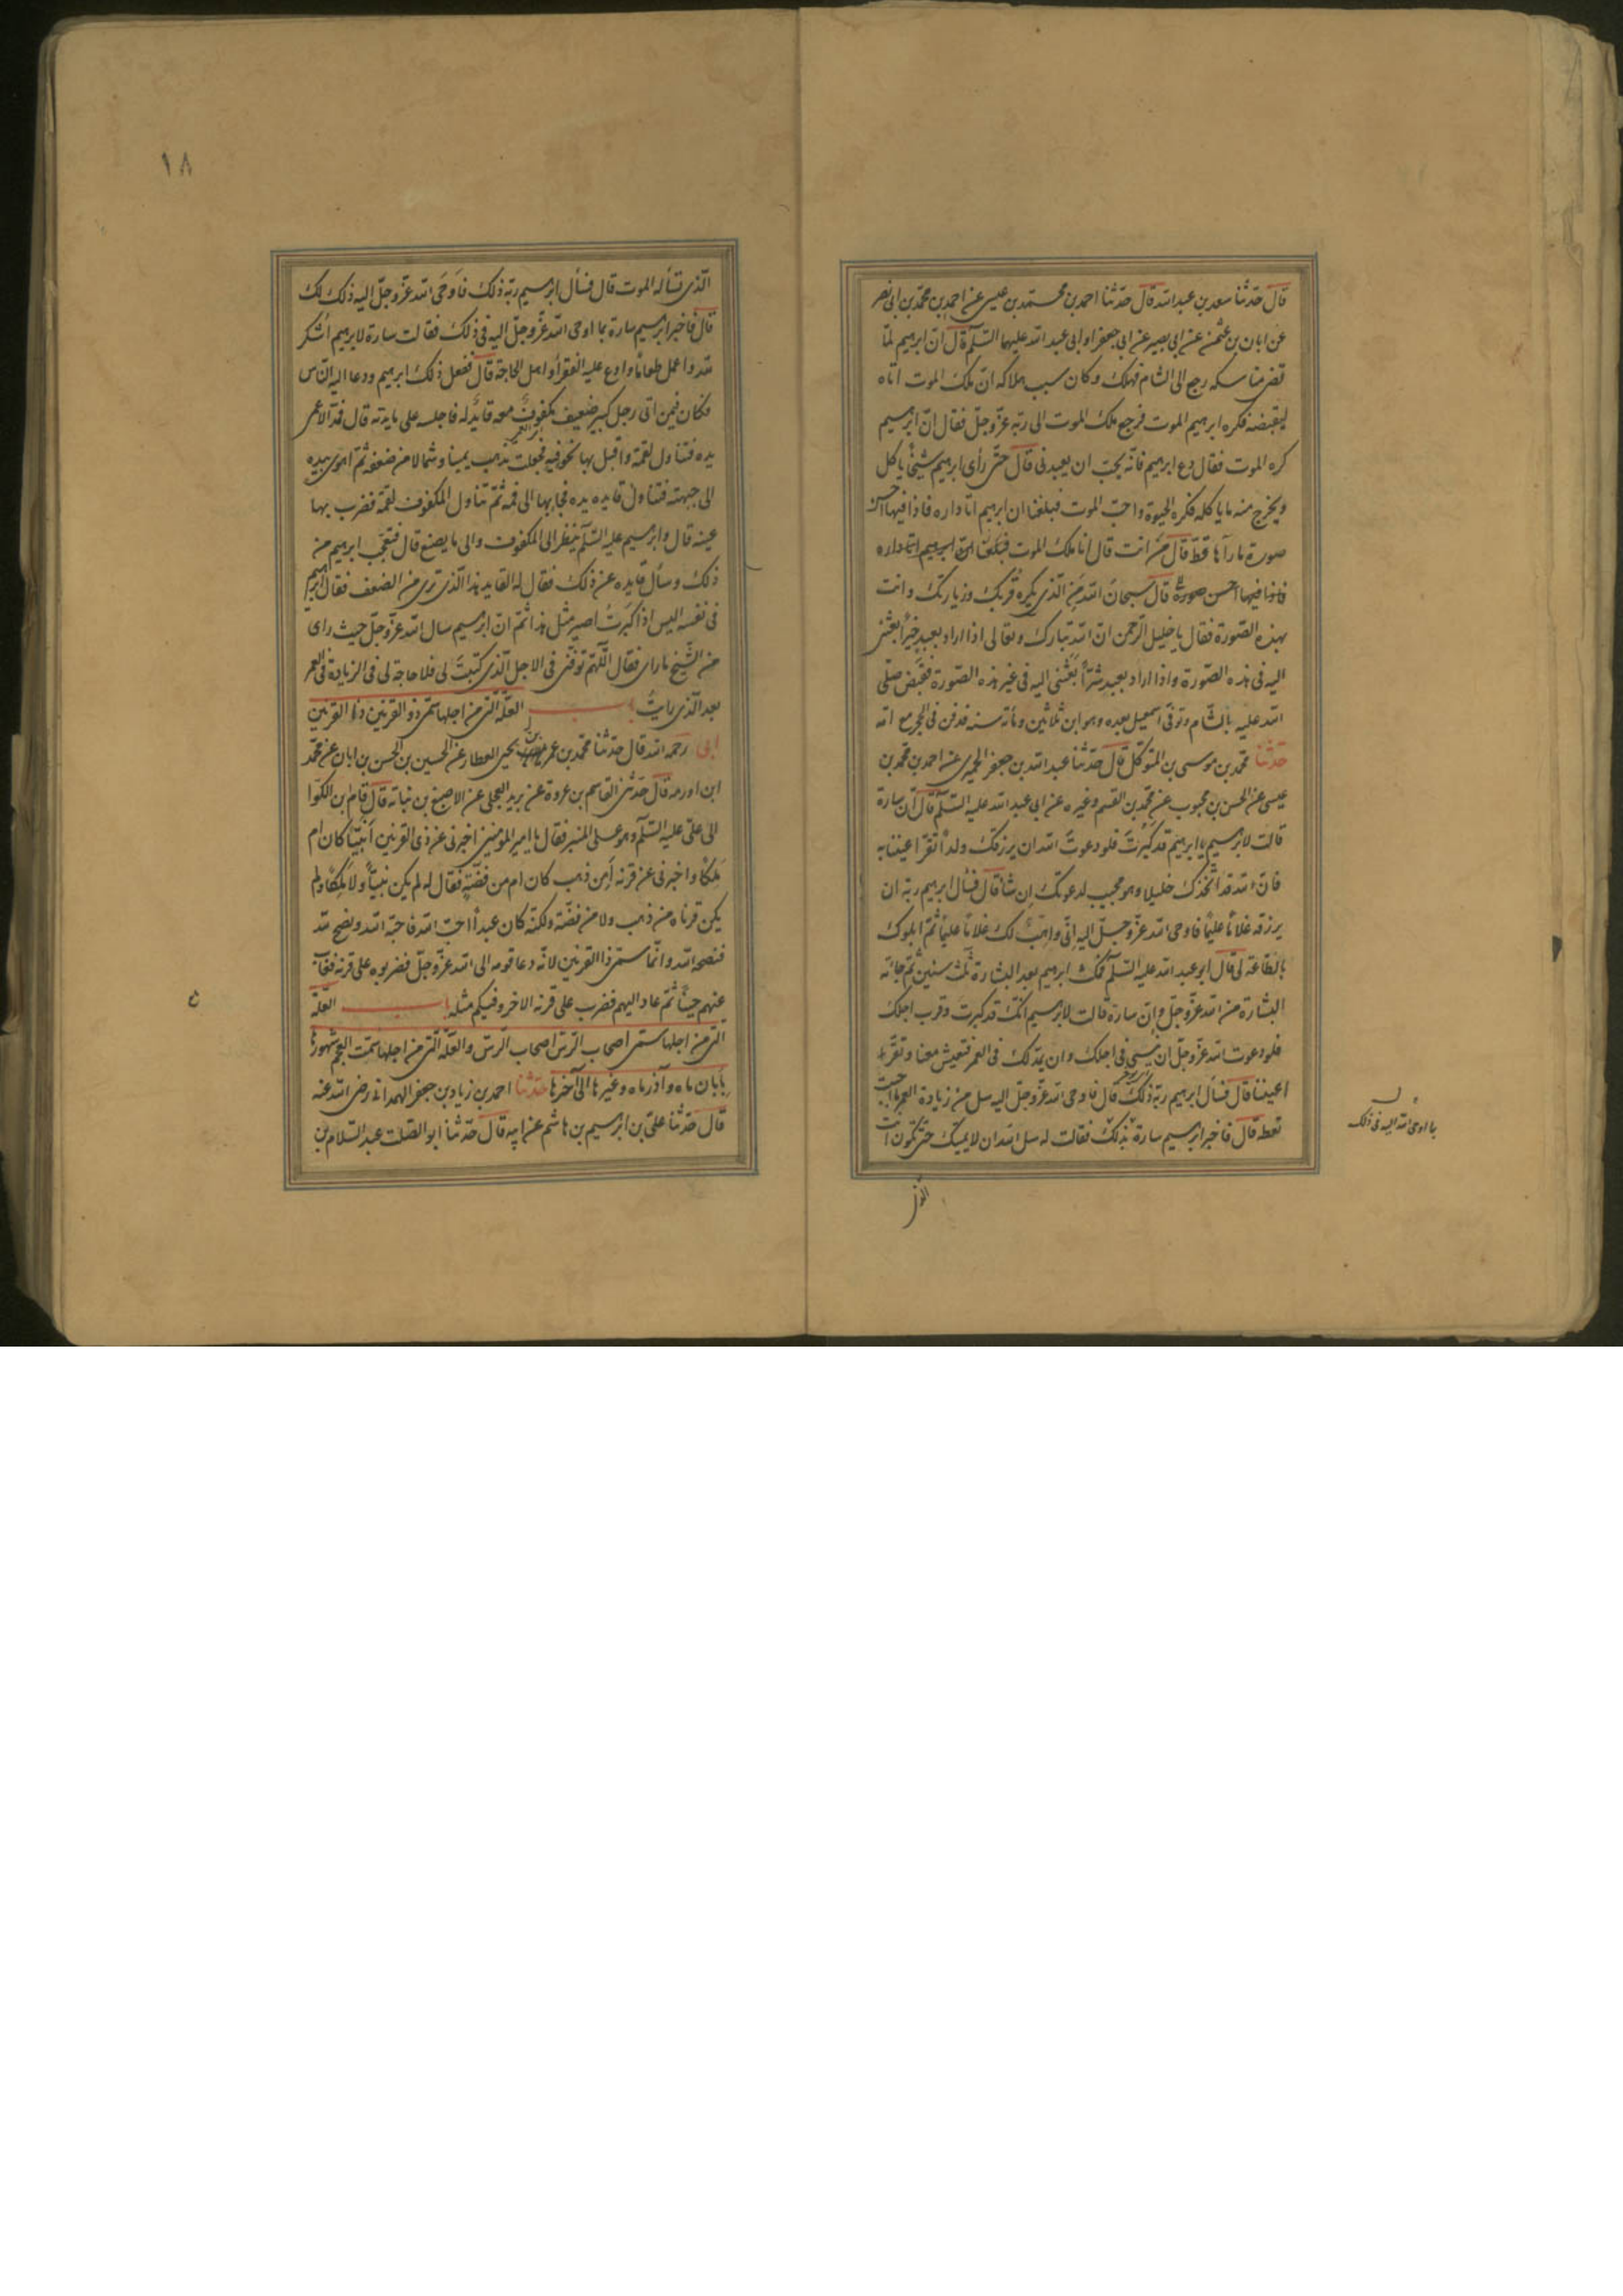 قال حدّثنا سعد بن عبد الله قال حدّثنا احمد بن محمّد بن عيسى عن احمد بن محمّد بن ابى نصر
عن ابان بن عثمن عن ابى بصير عن ابى جعفر او ابى عبد الله عليهما السّلم قال انّ ابرهيم لمّا
قضى مناسكه رجع الى الشام فهلك وكان سبب هلاكه انّ ملك الموت اتاه
ليقبضه فكره ابرهيم الموت فرجع ملك الموت الى ربّه عزّ وجلّ فقال انّ ابرهيم
كره الموت فقال دع ابرهيم فانّه يحبّ ان يعبدنى قال حتّى رأى ابرهيم شيخًا يأكل
ويخرج منه ما ياكله فكره الحيوة واحبّ الموت فبلغنا ان ابرهيم اتا داره فاذا فيها احسن
صورة ما رآها قطّ قال مَن انت قال انا ملك الموت فبلغنا انّ ابرهيم اتا داره
فاذا فيها احسن صورة قال سبحان الله مَنِ الّذى يكره قربك وزيارتك وانت
بهذه الصّورة فقال يا خليل الرّحمن انّ الله تبارك وتعالى اذا اراد بعبدٍ خيرًا بعثنى
اليه فى هذه الصّورة واذا اراد بعبد شرًّا بعثنى اليه فى غير هذه الصّورة فقبض صلّى
الله عليه بالشّام وتوفّى اسمعيل بعده وهو ابن ثلاثين ومأة سنة فدفن فى الحجر مع امّه
حدّثنا محمّد بن موسى بن المتوكّل قال حدّثنا عبد الله بن جعفر الحميرى عن احمد بن محمّد بن
عيسى عن الحسن بن محبوب عن محمّد بن القسم وغيره عن ابى عبد الله عليه السّلم قال انّ سارة
قالت لابرهيم يا ابرهيم قد كبرتَ فلو دعوتَ الله ان يرزقك ولدًا تقرّ اعيننا به
فانّ الله قد اتّخذك خليلا وهو مجيب لدعوتك ان شا قال فسأل ابرهيم ربّه ان
يرزقه غلامًا عليمًا فاوحى الله عزّ وجلّ اليه انّى واهبٌ لك غلامًا عليمًا ثمّ ابلوك
بالطّاعة لى قال ابو عبد الله عليه السّلم فمكث ابرهيم بعد البشارة ثلث سنين ثمّ جائته
البشارة من الله عزّ وجلّ وانّ سارة قالت لابرهيم انّك قد كبرتَ وقرب اجلك
فلو دعوت الله عزّ وجلّ ان ينسى فى اجلك وان يمدّ لك فى العمر فتعيش معنا وتقرّ
اعيننا قال فسأل ابرهيم ربّه ذلك قال فاوحى الله عزّ وجلّ اليه سل من زيادة العمر ما احببت
تعطه قال فاخبر ابرهيم سارة بذلك فقالت له سل الله ان لا يميتك حتّى تكون انت
بما اوحى الله اليه فى ذلك
الّذى
١٨
الّذى تسأله الموت قال فسأل ابرهيم ربّه ذلك فاوحى الله عزّ وجلّ اليه ذلك لك
قال فاخبر ابرهيم سارة بما اوحى الله عزّ وجلّ اليه فى ذلك فقالت سارة لابرهيم اشكر
لله واعمل طعامًا وادع عليه الفقرأ واهل الحاجة قال ففعل ذلك ابرهيم ودعا اليه النّاس
فكان فيمن اتى رجل كبير ضعيف مكفوف معه قائد له فاجلسه على مايدته قال فمدّ الاعمى
يده فتناول لقمة واقبل بها نحو فيه فجعلت تذهب يمينا وشمالا من ضعفه ثمّ اهوى بيده
الى جبهته فتناول قايده يده فجا بها الى فمه ثمّ تناول المكفوف لقمة فضرب بها
عينه قال وابرهيم عليه السّلم ينظر الى المكفوف والى ما يصنع قال فتعجّب ابرهيم من
ذلك وسأل قايده عن ذلك فقال له القايد هذا الّذى ترى من الضعف فقال ابرهيم
فى نفسه اليس اذا كبرتُ اصير مثل هذا ثمّ انّ ابرهيم سال الله عزّ وجلّ حيث راى
من الشّيخ ما راى فقال اللّهمّ توفّنى فى الاجل الّذى كتبتَ لى فلا حاجة لى فى الزيادة فى العمر
بعد الّذى رايتُ باب العلّة الّتى من اجلها سمّى ذو القرنين ذا القرنين
ابى رحمه الله قال حدّثنا محمّد بن يحيى العطار عن الحسين بن الحسن بن ابان عن محمّد
ابن اورمه قال حدّثنى القاسم بن عروة عن بريد العجلى عن الاصبغ بن نباته قال قام ابن الكوّا
الى علىّ عليه السّلم وهو على المنبر فقال يا امير المؤمنين اخبرنى عن ذى القرنين أنبيّا كان ام
مَلكًا واخبرنى عن قرنه أمن ذهب كان ام من فضّةٍ فقال له لم يكن نبيّاً ولا مَلِكًا ولم
يكن قرناه من ذهب ولا من فضّة ولكنّه كان عبدًا احبّ الله فاحبّه الله ونصح لله
فنصحه الله وانّما سمّى ذا القرنين لانّه دعا قومه الى الله عزّ وجلّ فضربوه على قرنه فغاب
عنهم حينًا ثمّ عاد اليهم فضرب على قرنه الاخر وفيكم مثله باب العلّة
الّتى من اجلها سمّى اصحاب الرّسّ اصحاب الرّسّ والعلّة الّتى من اجلها سمّت العجم شهورها
بابان ماه وآذر ماه وغيرها الى آخرها حدّثنا احمد بن زياد بن جعفر الهمدانى رضى الله عنه
قال حدّثنا علىّ بن ابرهيم بن هاشم عن ابيه قال حدّثنا ابو الصّلت عبد السّلام بن